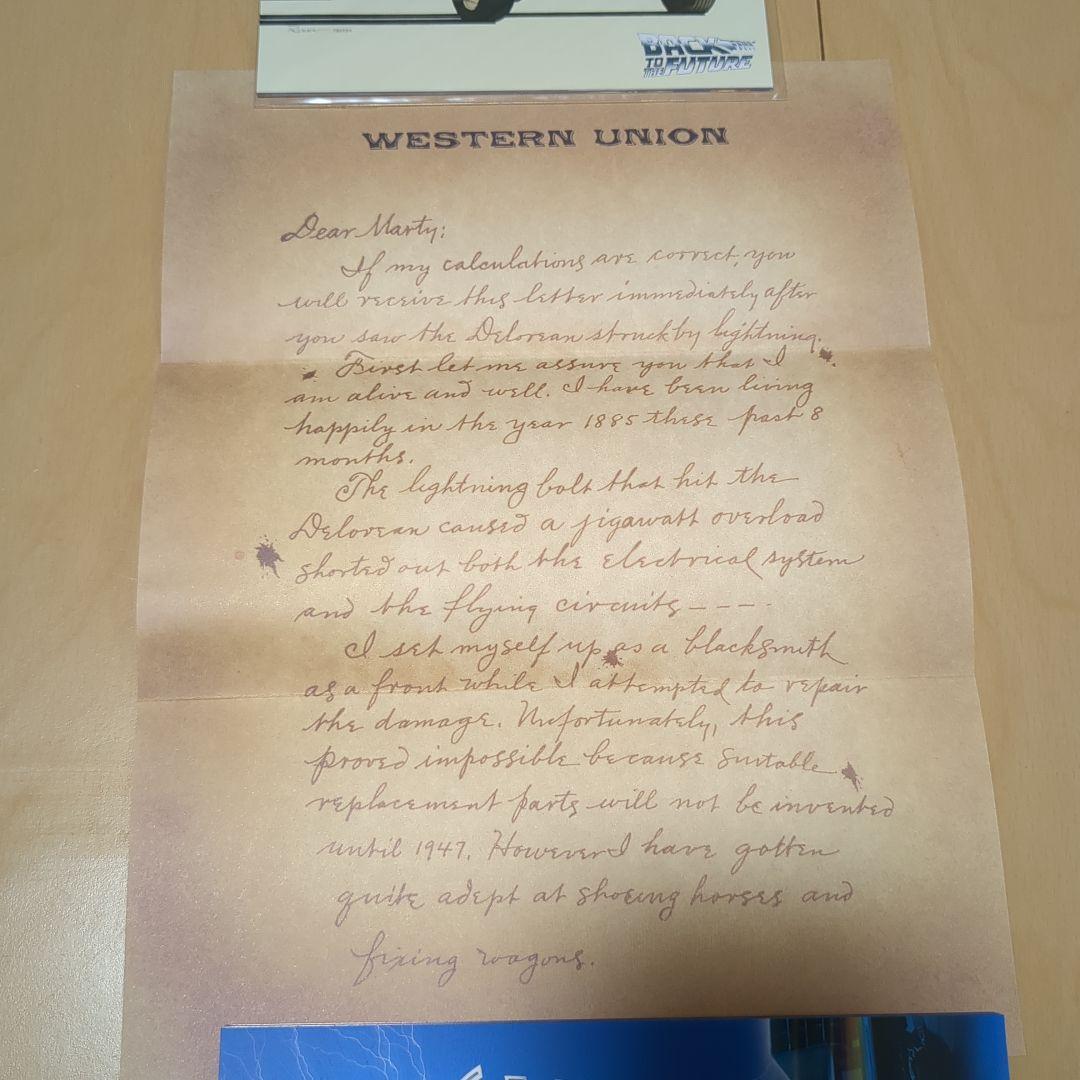 BACK
TO THE FUTURE
WESTERN UNION
Dear Marty:
If my calculations are correct, you
will receive this letter immediately after
you saw the Delorean struck by lightning.
First let me assure you that I
am alive and well. I have been living
happily in the year 1885 these past 8
months.
The lightning bolt that hit the
Delorean caused a jigawatt overload
shorted out both the electrical system
and the flying circuits----
I set myself up as a blacksmith
as a front while I attempted to repair
the damage. Unfortunately, this
proved impossible because suitable
replacement parts will not be invented
until 1947. However I have gotten
quite adept at shoeing horses and
fixing wagons.